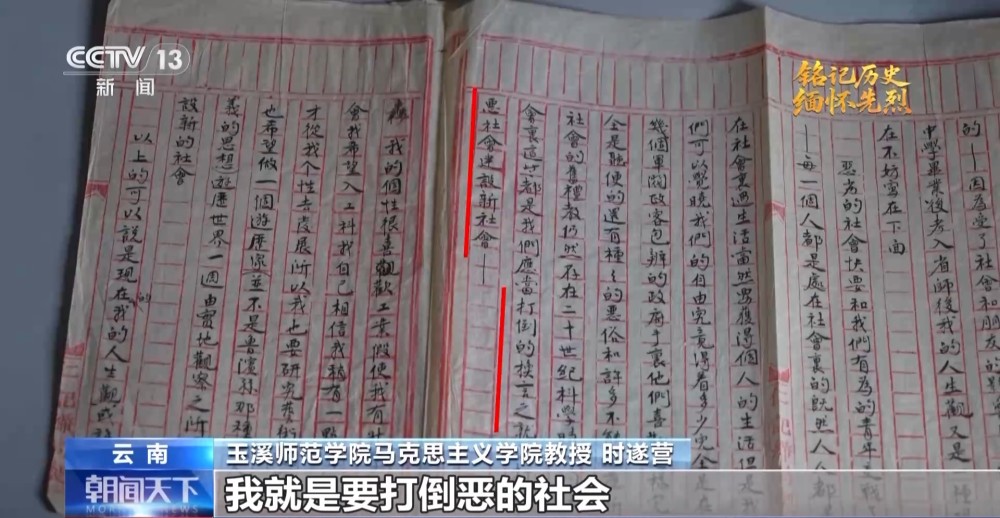 CCTV 13
新闻
铭记历史
缅怀先烈
的——因為受了社會和朋友的
中學畢業後考入省師後我的人生觀又是
在不妨寫在下面
惡劣的社會快要和我們有為的青年
——每一個人都是處在社會裏的既然人人都
在社會裏過生活當然要獲得個人的生活但是
們可以覺曉我們的自由究竟得着多少完全
幾個軍閥政客包辦的政府手裏他們喜
全是的還有種々的惡俗和許多不
社會的舊禮教仍然存在二十世紀科學
會裏這些都是我們應當打倒的換言之就
惡社會建設新社會——
我的個性很喜歡工業假使我有
會我希望入工科我自己相信我稍有一點
才從我個性去發展所以我也要研究
也希望做一個遊歷家(並不是魯濱孫那種
義的思想遊歷世界一週由實地觀察之所
設新的社會
以上的可以說是現在的我的人生觀或
云南
玉溪师范学院马克思主义学院教授 时遂营
朝闻天下
我就是要打倒恶的社会